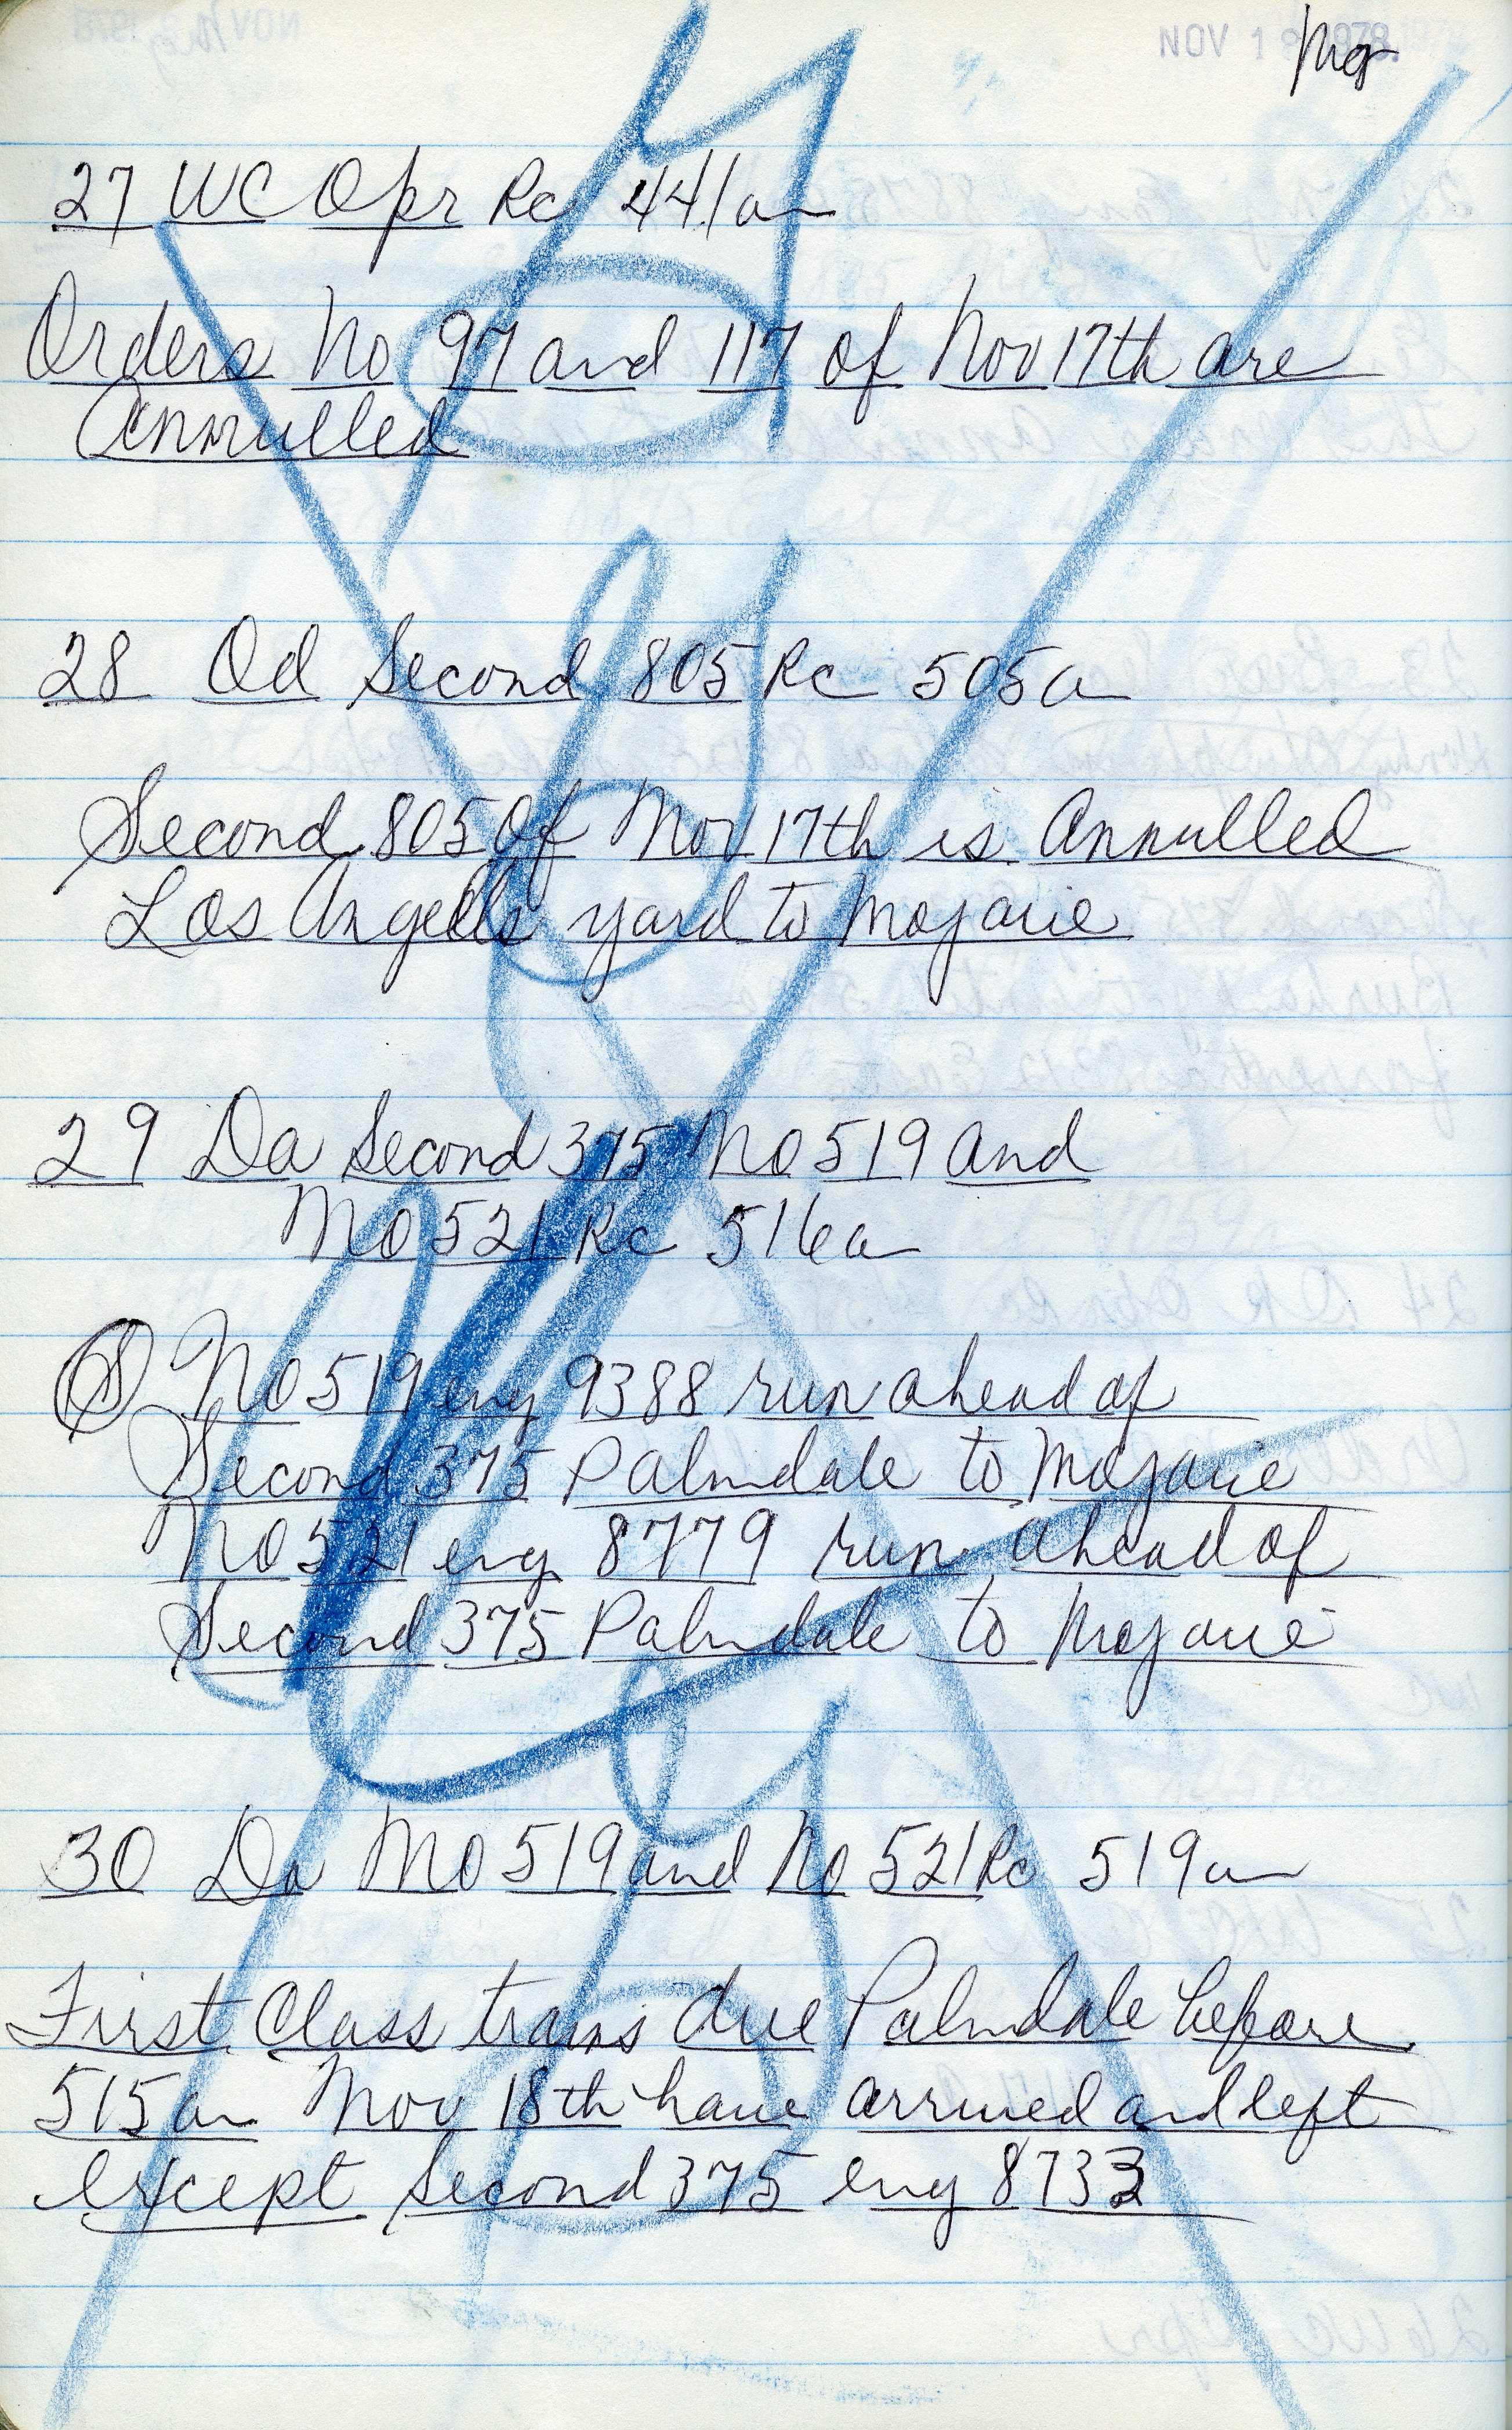 NOV 18 1978
27 WC Opr Rc 441am
Orders No 97 and 117 of Nov 17th are
Annulled
28 Od Second 805 Rc 505am
Second 805 of Nov 17th is Annulled
Los Angeles yard to Mojave
29 Da Second 375 No 519 and
No 521 Rc 516am
No 519 eng 9388 run ahead of
Second 375 Palmdale to Mojave
No 521 eng 8779 run ahead of
Second 375 Palmdale to Mojave
30 Da No 519 and No 521 Rc 519am
First Class trains due Palmdale before
515am Nov 18th have arrived and left
except Second 375 eng 8733